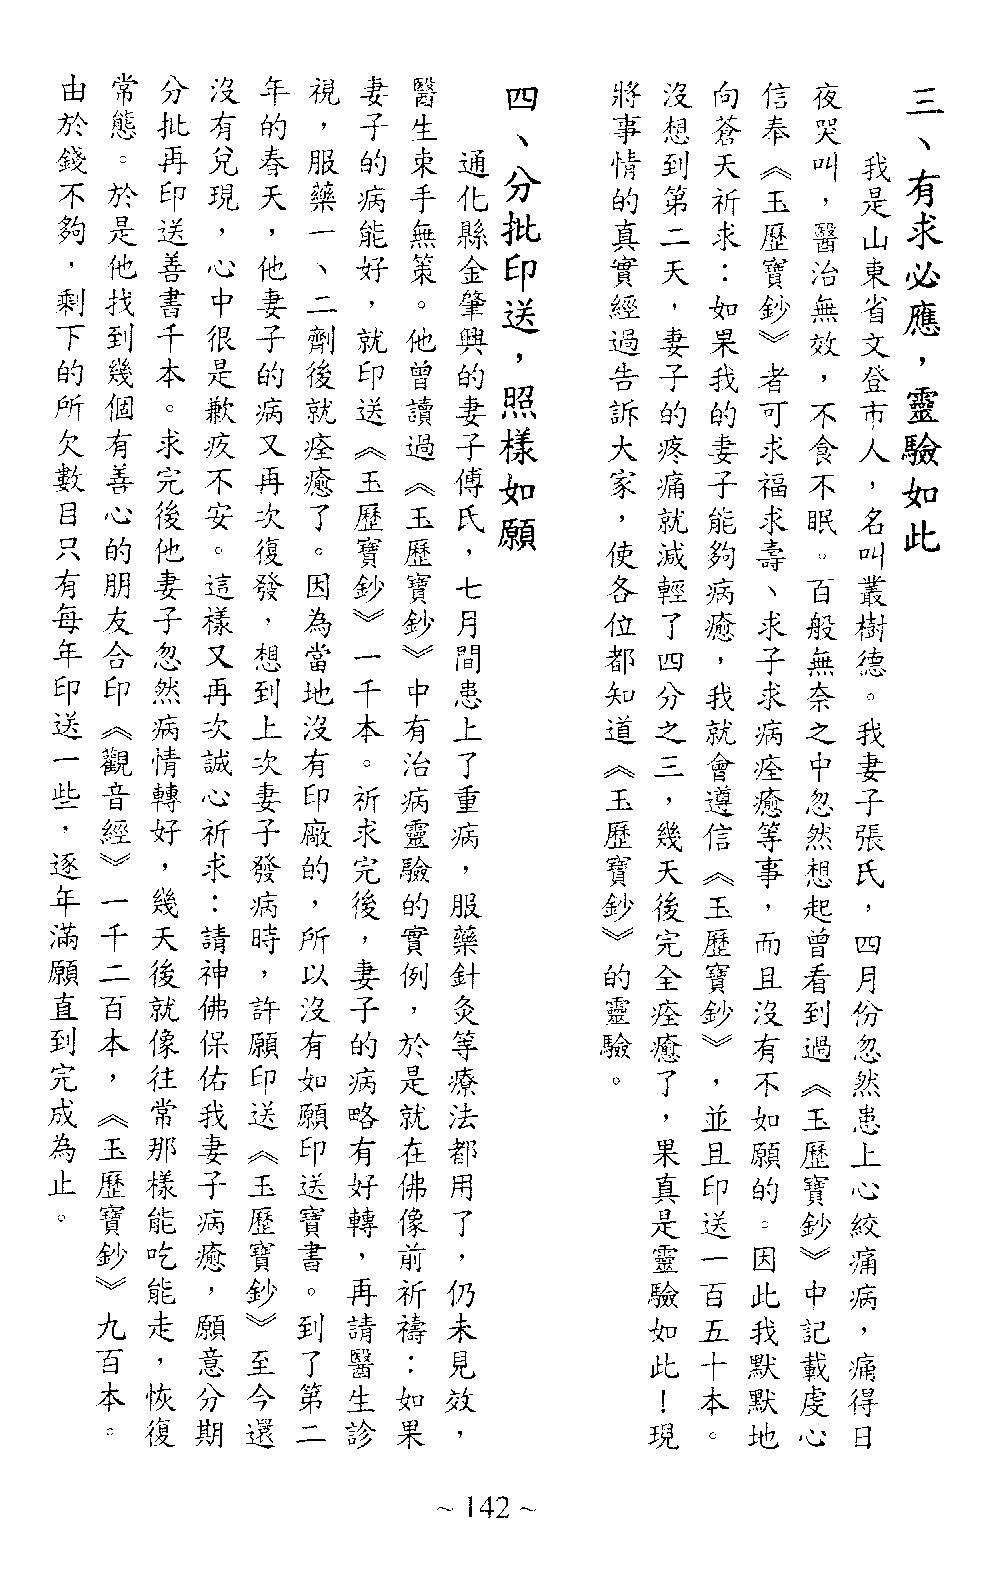 三、有求必應，靈驗如此
我是山東省文登市人，名叫叢樹德。我妻子張氏，四月份忽然患上心絞痛病，痛得日
夜哭叫，醫治無效，不食不眠。百般無奈之中忽然想起曾看到過《玉歷寶鈔》中記載虔心
信奉《玉歷寶鈔》者可求福求壽、求子求病痊癒等事，而且沒有不如願的。因此我默默地
向蒼天祈求：如果我的妻子能夠病癒，我就會遵信《玉歷寶鈔》，並且印送一百五十本。
沒想到第二天，妻子的疼痛就減輕了四分之三，幾天後完全痊癒了，果真是靈驗如此！現
將事情的真實經過告訴大家，使各位都知道《玉歷寶鈔》的靈驗。
四、分批印送，照樣如願
通化縣金肇興的妻子傅氏，七月間患上了重病，服藥針灸等療法都用了，仍未見效，
醫生束手無策。他曾讀過《玉歷寶鈔》中有治病靈驗的實例，於是就在佛像前祈禱：如果
妻子的病能好，就印送《玉歷寶鈔》一千本。祈求完後，妻子的病略有好轉，再請醫生診
視，服藥一、二劑後就痊癒了。因為當地沒有印廠的，所以沒有如願印送寶書。到了第二
年的春天，他妻子的病又再次復發，想到上次妻子發病時，許願印送《玉歷寶鈔》至今還
沒有兌現，心中很是歉疚不安。這樣又再次誠心祈求：請神佛保佑我妻子病癒，願意分期
分批再印送善書千本。求完後他妻子忽然病情轉好，幾天後就像往常那樣能吃能走，恢復
常態。於是他找到幾個有善心的朋友合印《觀音經》一千二百本，《玉歷寶鈔》九百本。
由於錢不夠，剩下的所欠數目只有每年印送一些，逐年滿願直到完成為止。
~ 142 ~